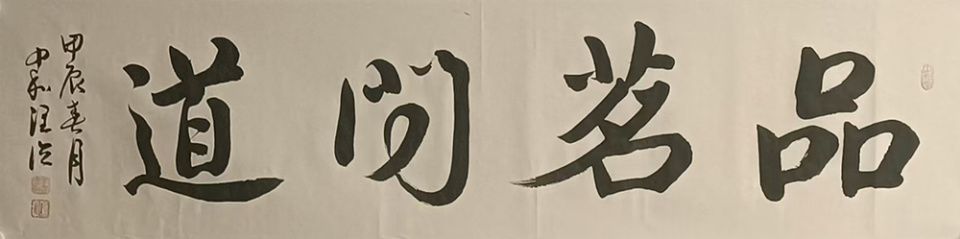 品茗问道
甲辰春月
中和汪洋